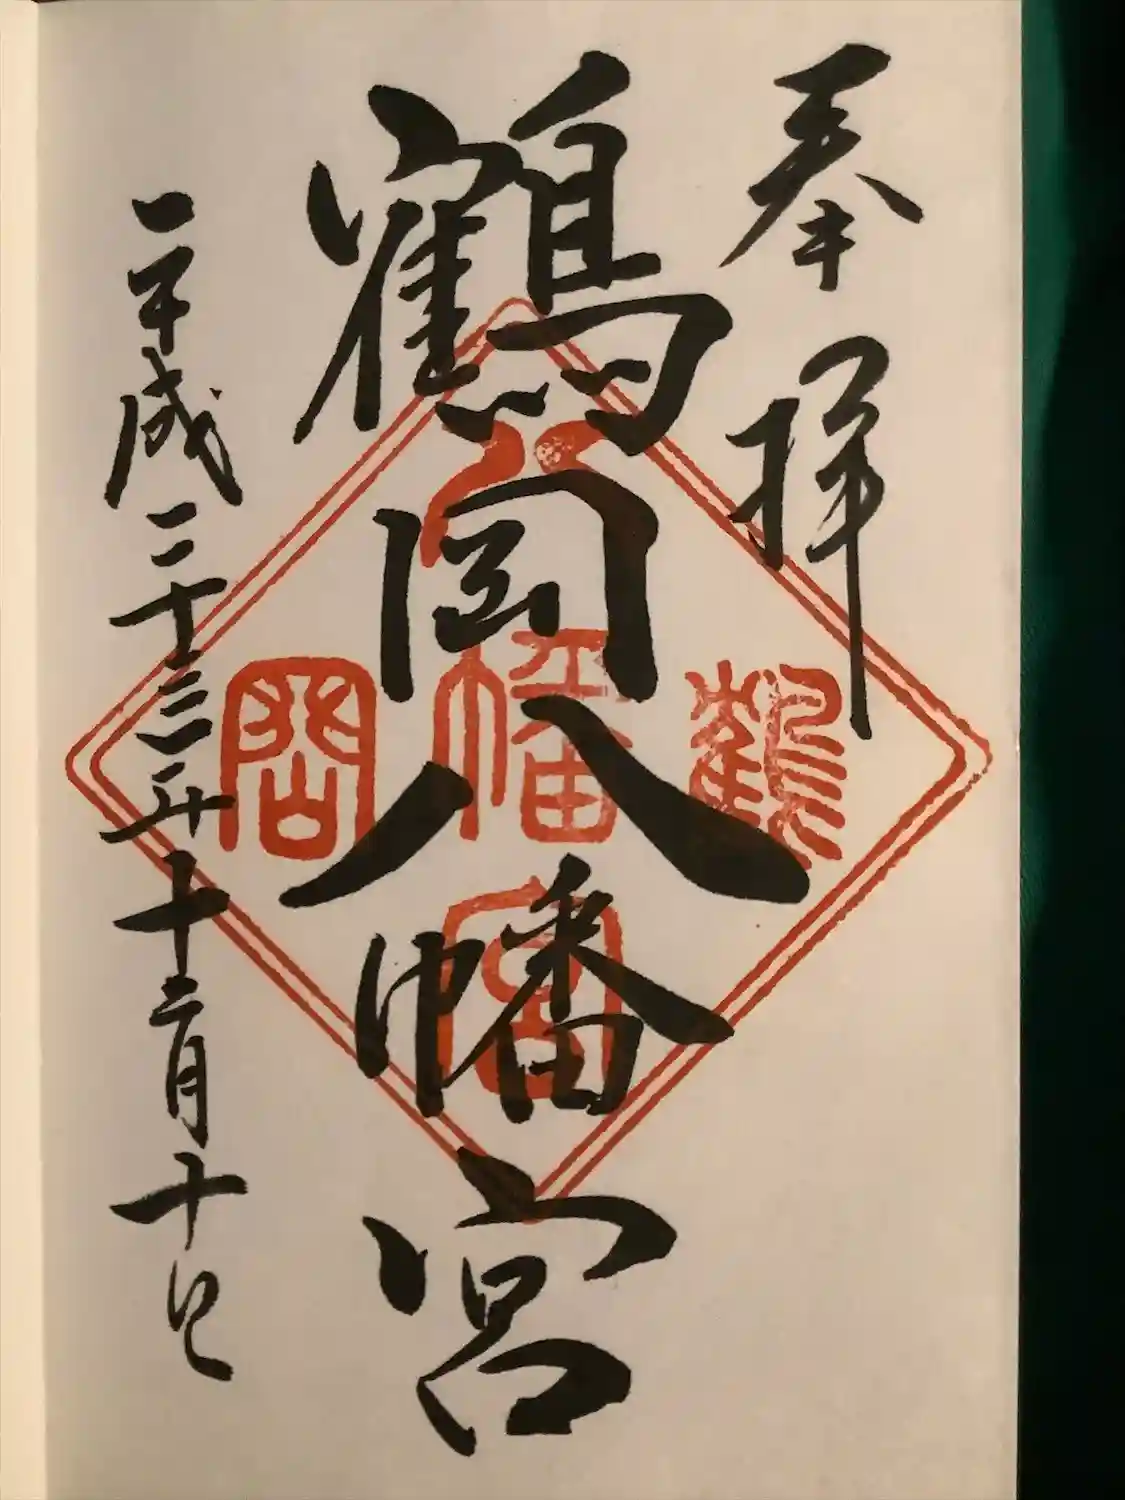 奉拝
鶴岡八幡宮
平成二十三年十二月十日
鶴岡八幡宮